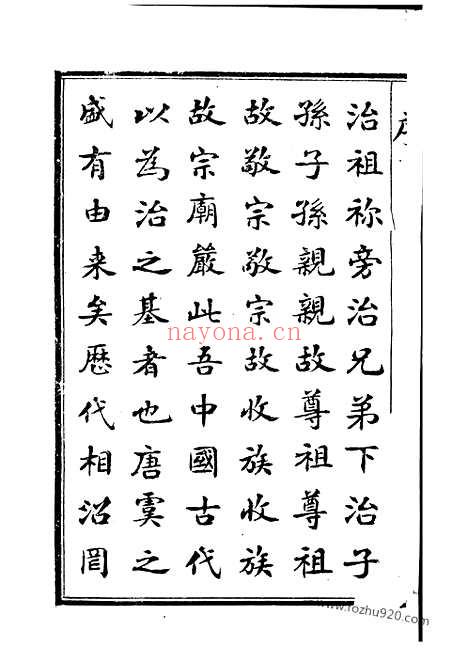 治祖祢旁治兄弟下治子
孫子孫親親故尊祖尊祖
故敬宗敬宗故收族收族
故宗廟嚴此吾中國古代
以為治之基者也唐虞之
盛有由来矣歷代相沿罔
nayona.cn
www.fozhu920.com